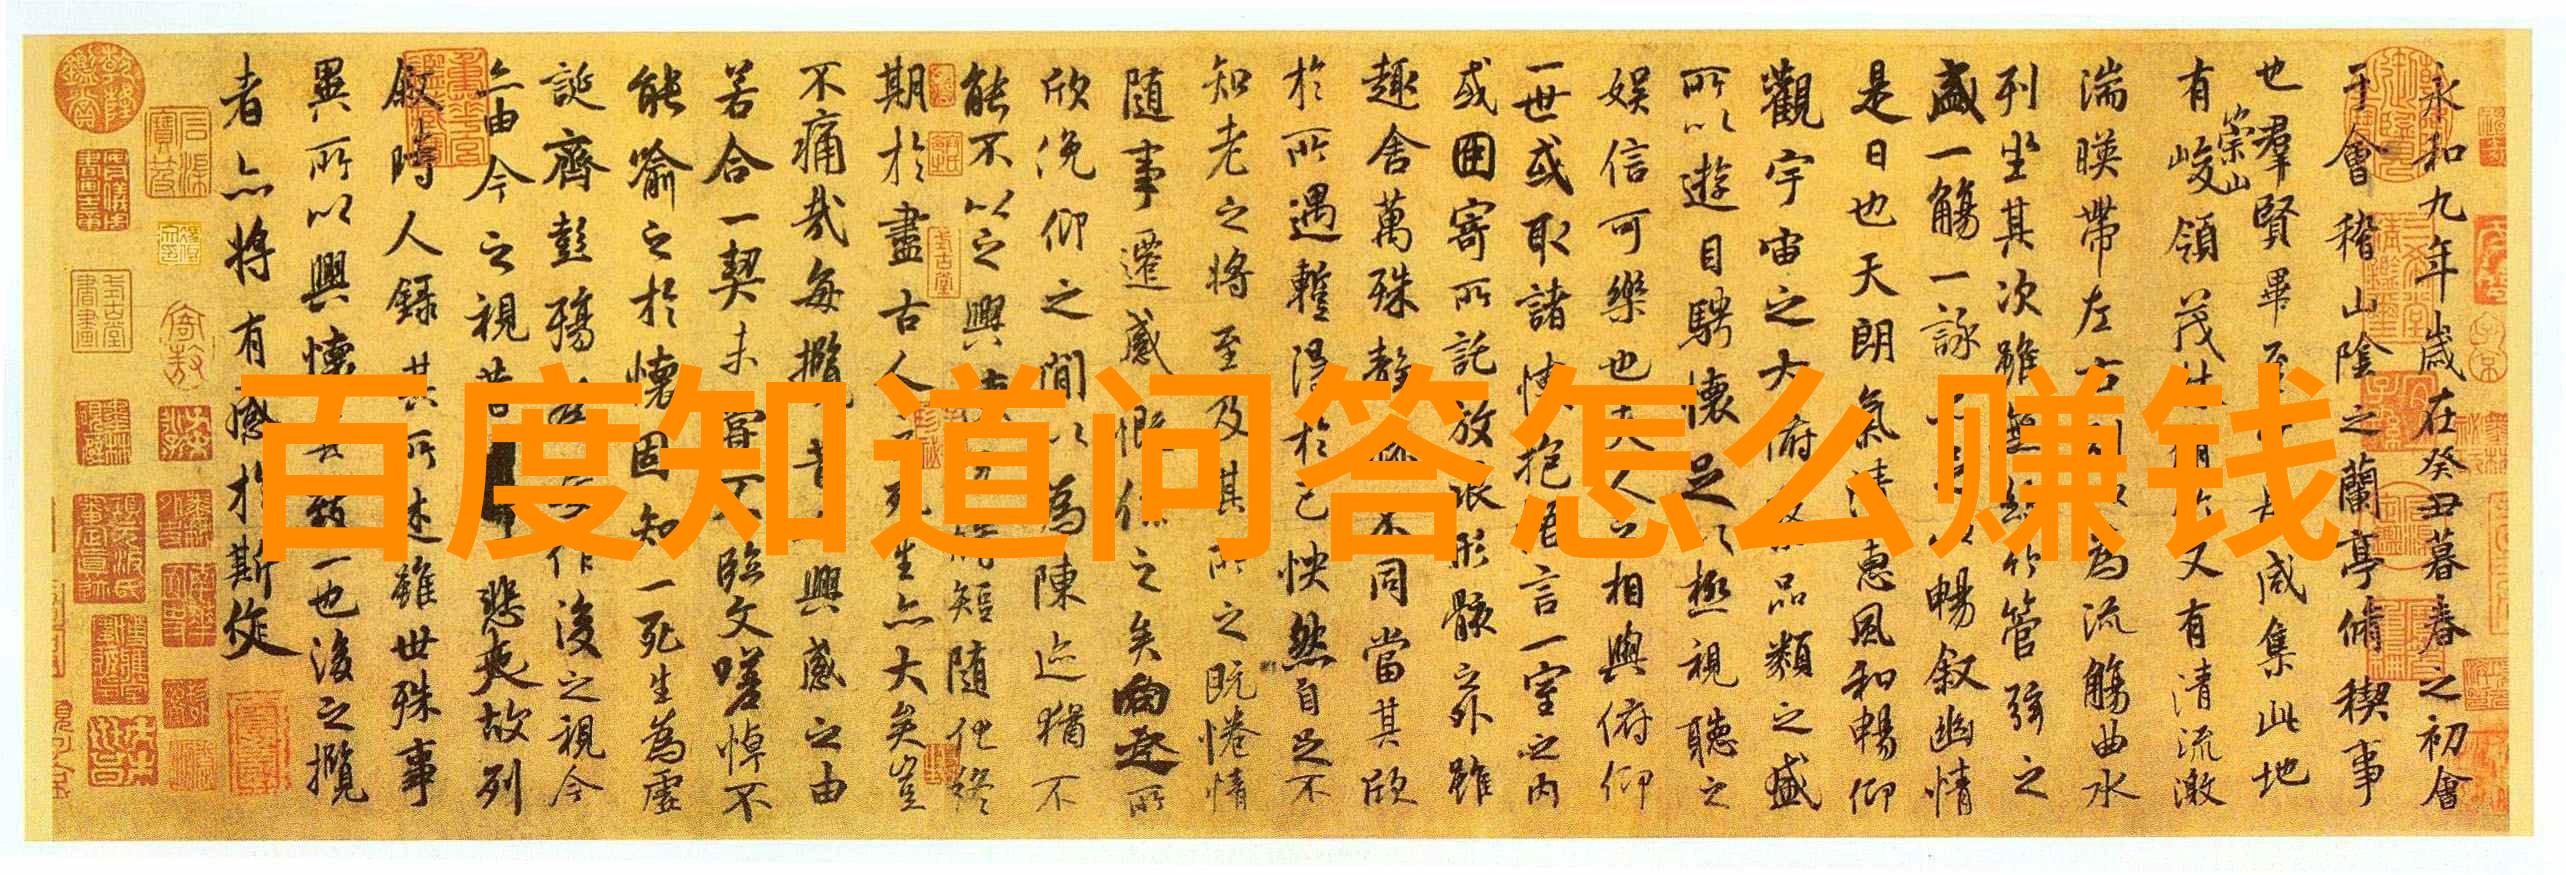 百度知道问答怎么赚钱
永和九年歲在癸丑暮春之初會
于會稽山陰之蘭亭脩稧事
也羣賢畢至咸集此地
有崇山峻領茂林又有清流激
湍暎帶左右為流觴曲水
列坐其次雖無絲竹管弦之
盛一觴一詠暢叙幽情
是日也天朗氣清惠風和暢仰
觀宇宙之大俯品類之盛
所以遊目騁懷足以極視聽之
娛信可樂也夫人之相與俯仰
一世或取諸懷抱言一室之內
或因寄所託放浪形骸之外雖
趣舍萬殊靜不同當其欣
於所遇蹔得於己怏然自足不
知老之將至及其所之既惓情
隨事遷感慨係之矣向之所
欣俛仰之閒以為陳迹猶不
能不以之興短隨化終
期於盡古人死生亦大矣豈
不痛哉每攬昔興感之由
若合一契未嘗不臨文嗟悼不
能喻之於懷固知一死生為虛
誕齊彭殤作後之視今
亦由今之視昔悲夫故列
叙時人錄其所述雖世殊事
異所以興懷一也後之攬
者亦將有感於斯文